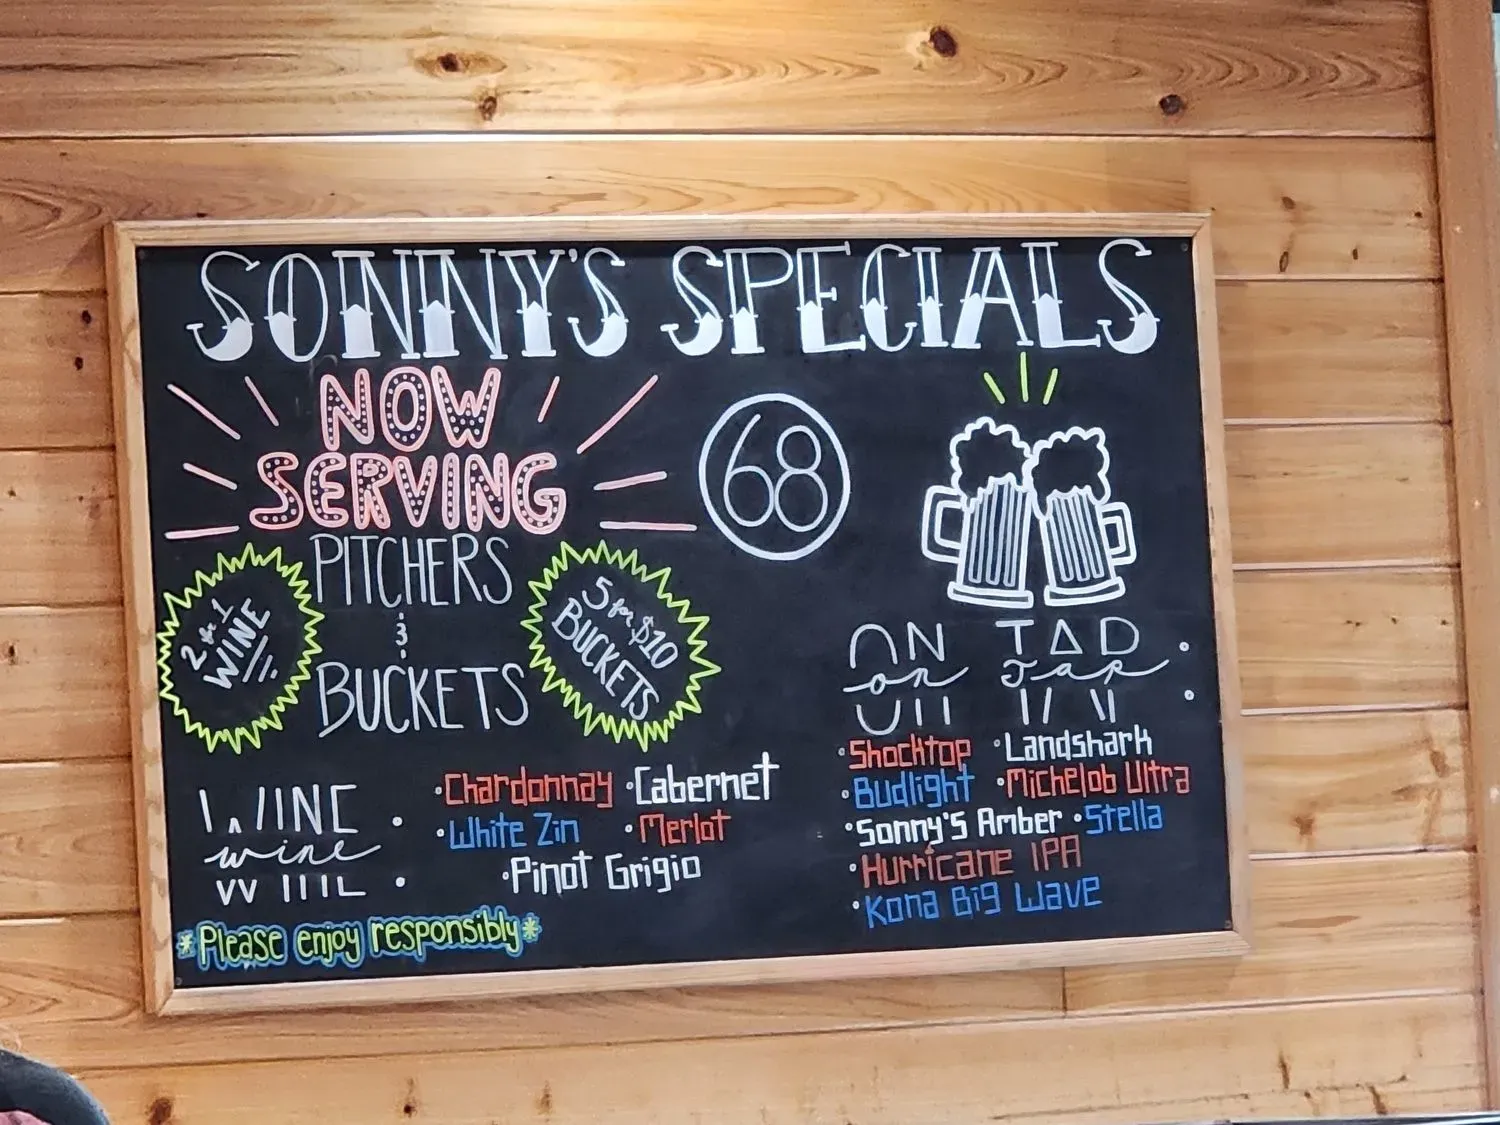 SONNY'S SPECIALS
NOW
SERVING
68
PITCHERS
&
BUCKETS
2 for 1
WINE
5 for $10
BUCKETS
WINE
wine
•Chardonnay •Cabernet
•White Zin •Merlot
•Pinot Grigio
*Please enjoy responsibly*
ON TAP:
on Tap
•Shocktop •Landshark
•Budlight •Michelob Ultra
•Sonny's Amber •Stella
•Hurricane IPA
•Kona Big Wave